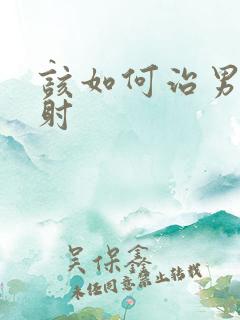 该如何治男
射
吴保鑫
未经同意禁止转载